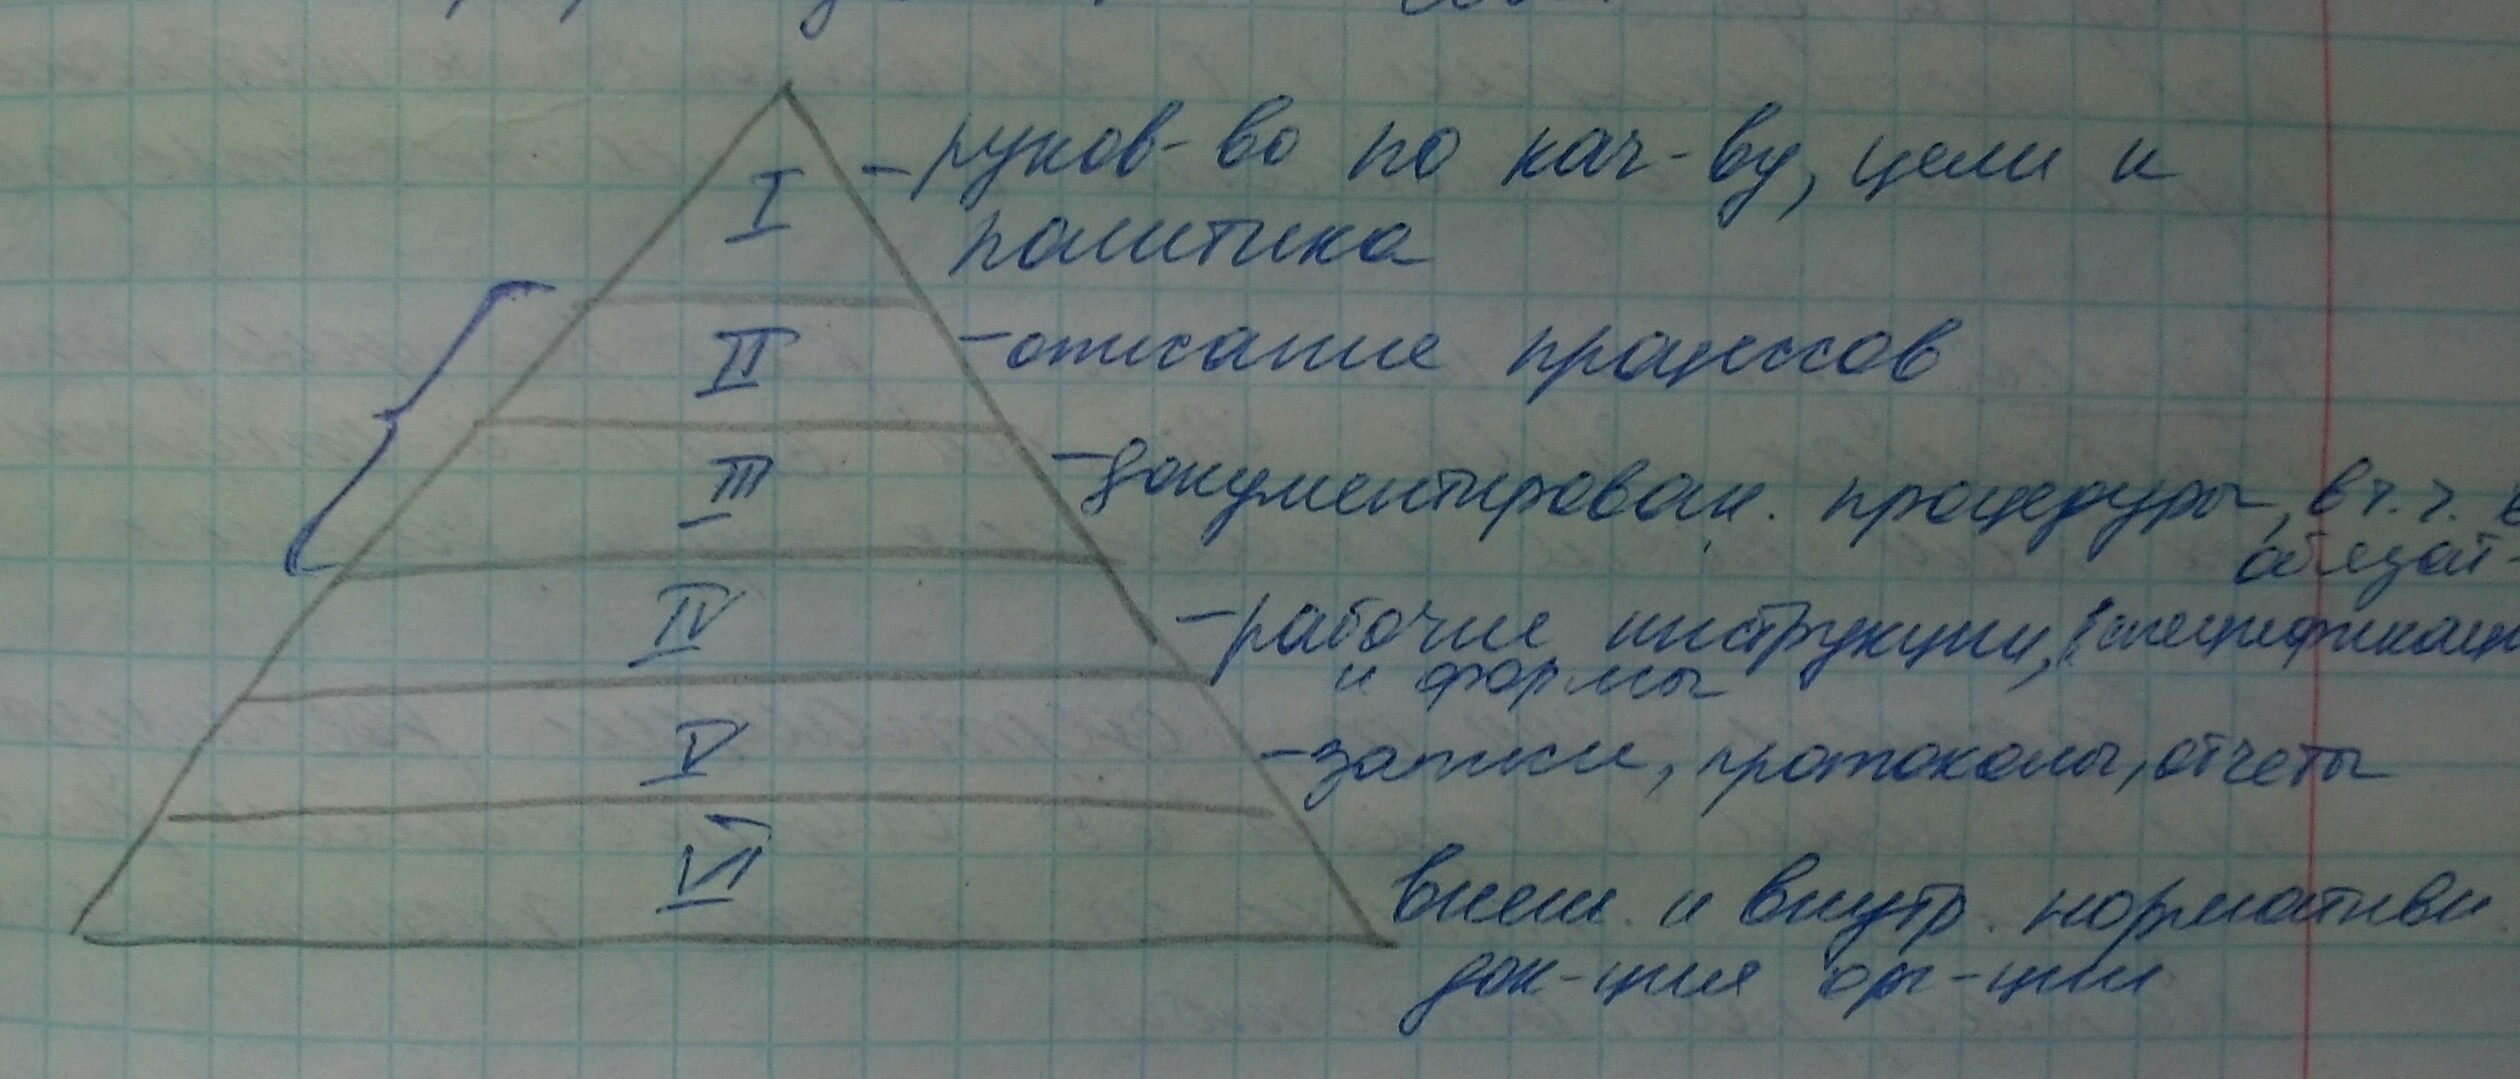 I - руков-во по кач-ву, цели и
политика
II - описание процессов
III - документирован. процедуры, в т.ч.
обязат-
IV - рабочие инструкции, спецификац
и формы
V - записи, протоколы, отчеты
VI внеш. и внутр. нормативн.
док-ция орг-ции